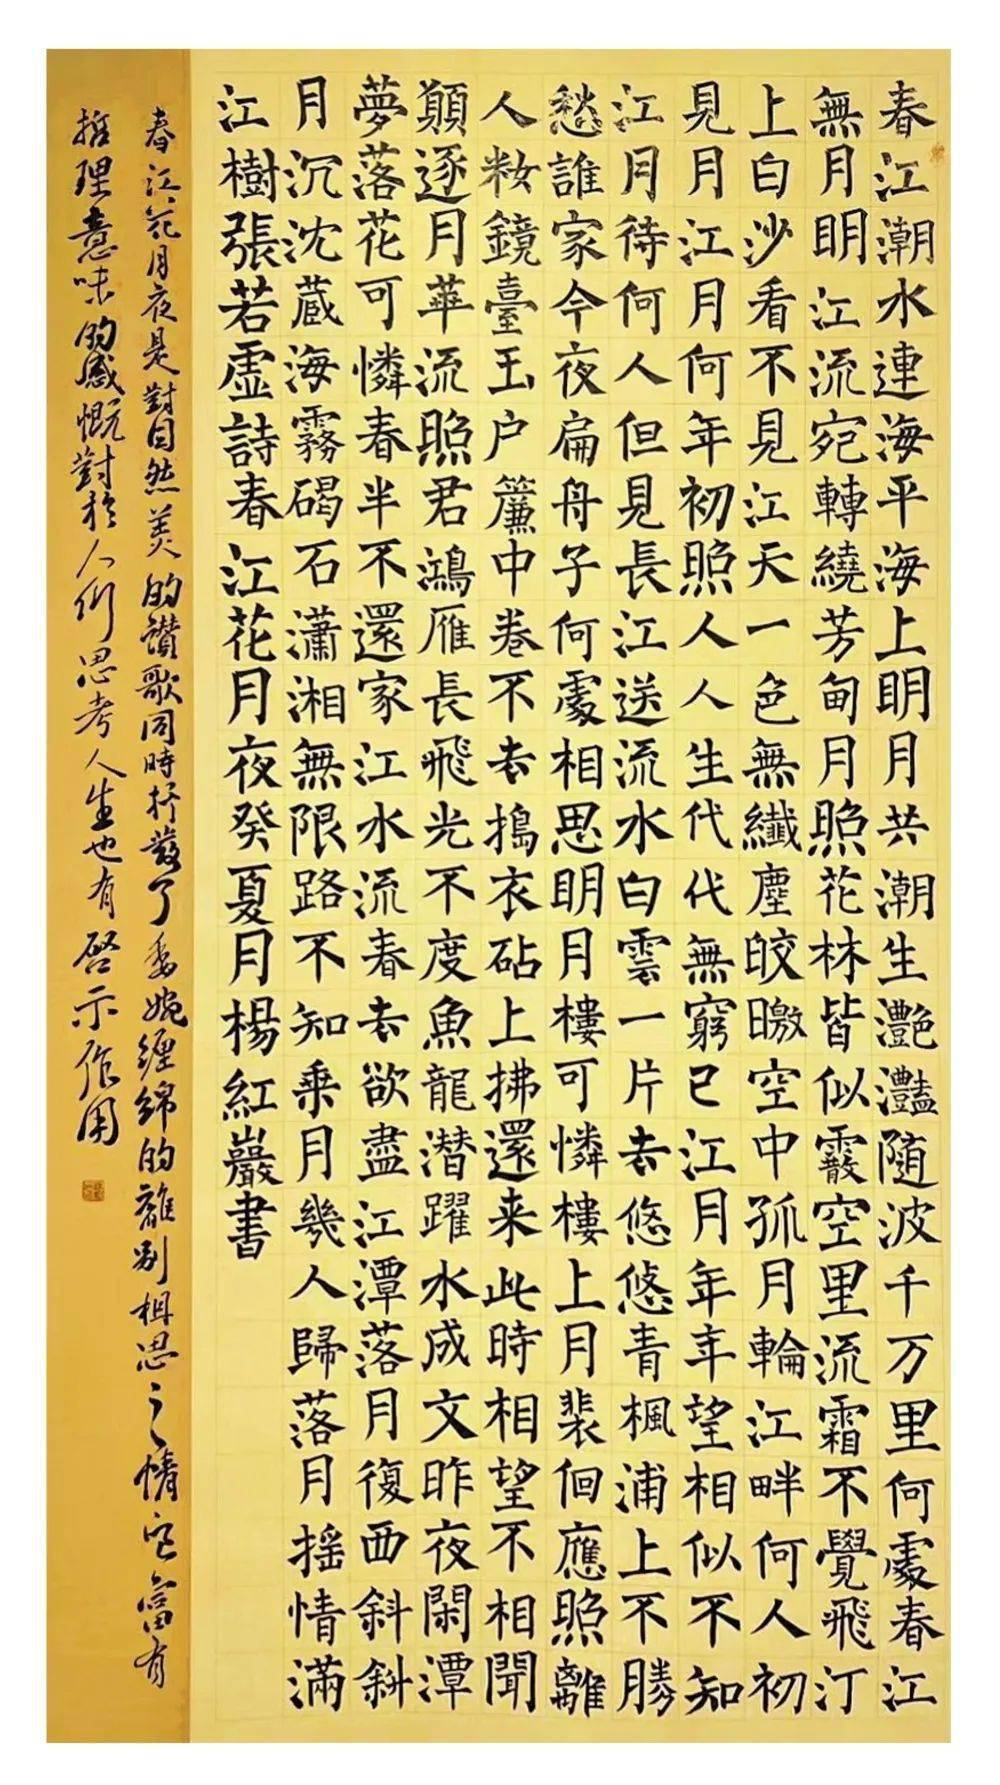 春江潮水連海平海上明月共潮生灧灩隨波千万里何處春江
無月明江流宛轉繞芳甸月照花林皆似霰空里流霜不覺飛汀
上白沙看不見江天一色無纖塵皎曒空中孤月輪江畔何人初
見月江月何年初照人人生代代無窮已江月年年望相似不知
江月待何人但見長江送流水白雲一片去悠悠青楓浦上不勝
愁誰家今夜扁舟子何處相思明月樓可憐樓上月裴佪應照離
人籹鏡臺玉户簾中卷不去搗衣砧上拂還来此時相望不相聞
顛逐月華流照君鴻雁長飛光不度魚龍潜躍水成文昨夜閑潭
夢落花可憐春半不還家江水流春去欲盡江潭落月復西斜斜
月沉沈蔵海霧碣石瀟湘無限路不知乘月幾人歸落月摇情滿
江樹張若虛詩春江花月夜癸夏月楊紅巖書
春江花月夜是對自然美的讃歌同時抒發了委婉缠綿的離别相思之情它富有
哲理意味的感慨對於人们思考人生也有啓示作用